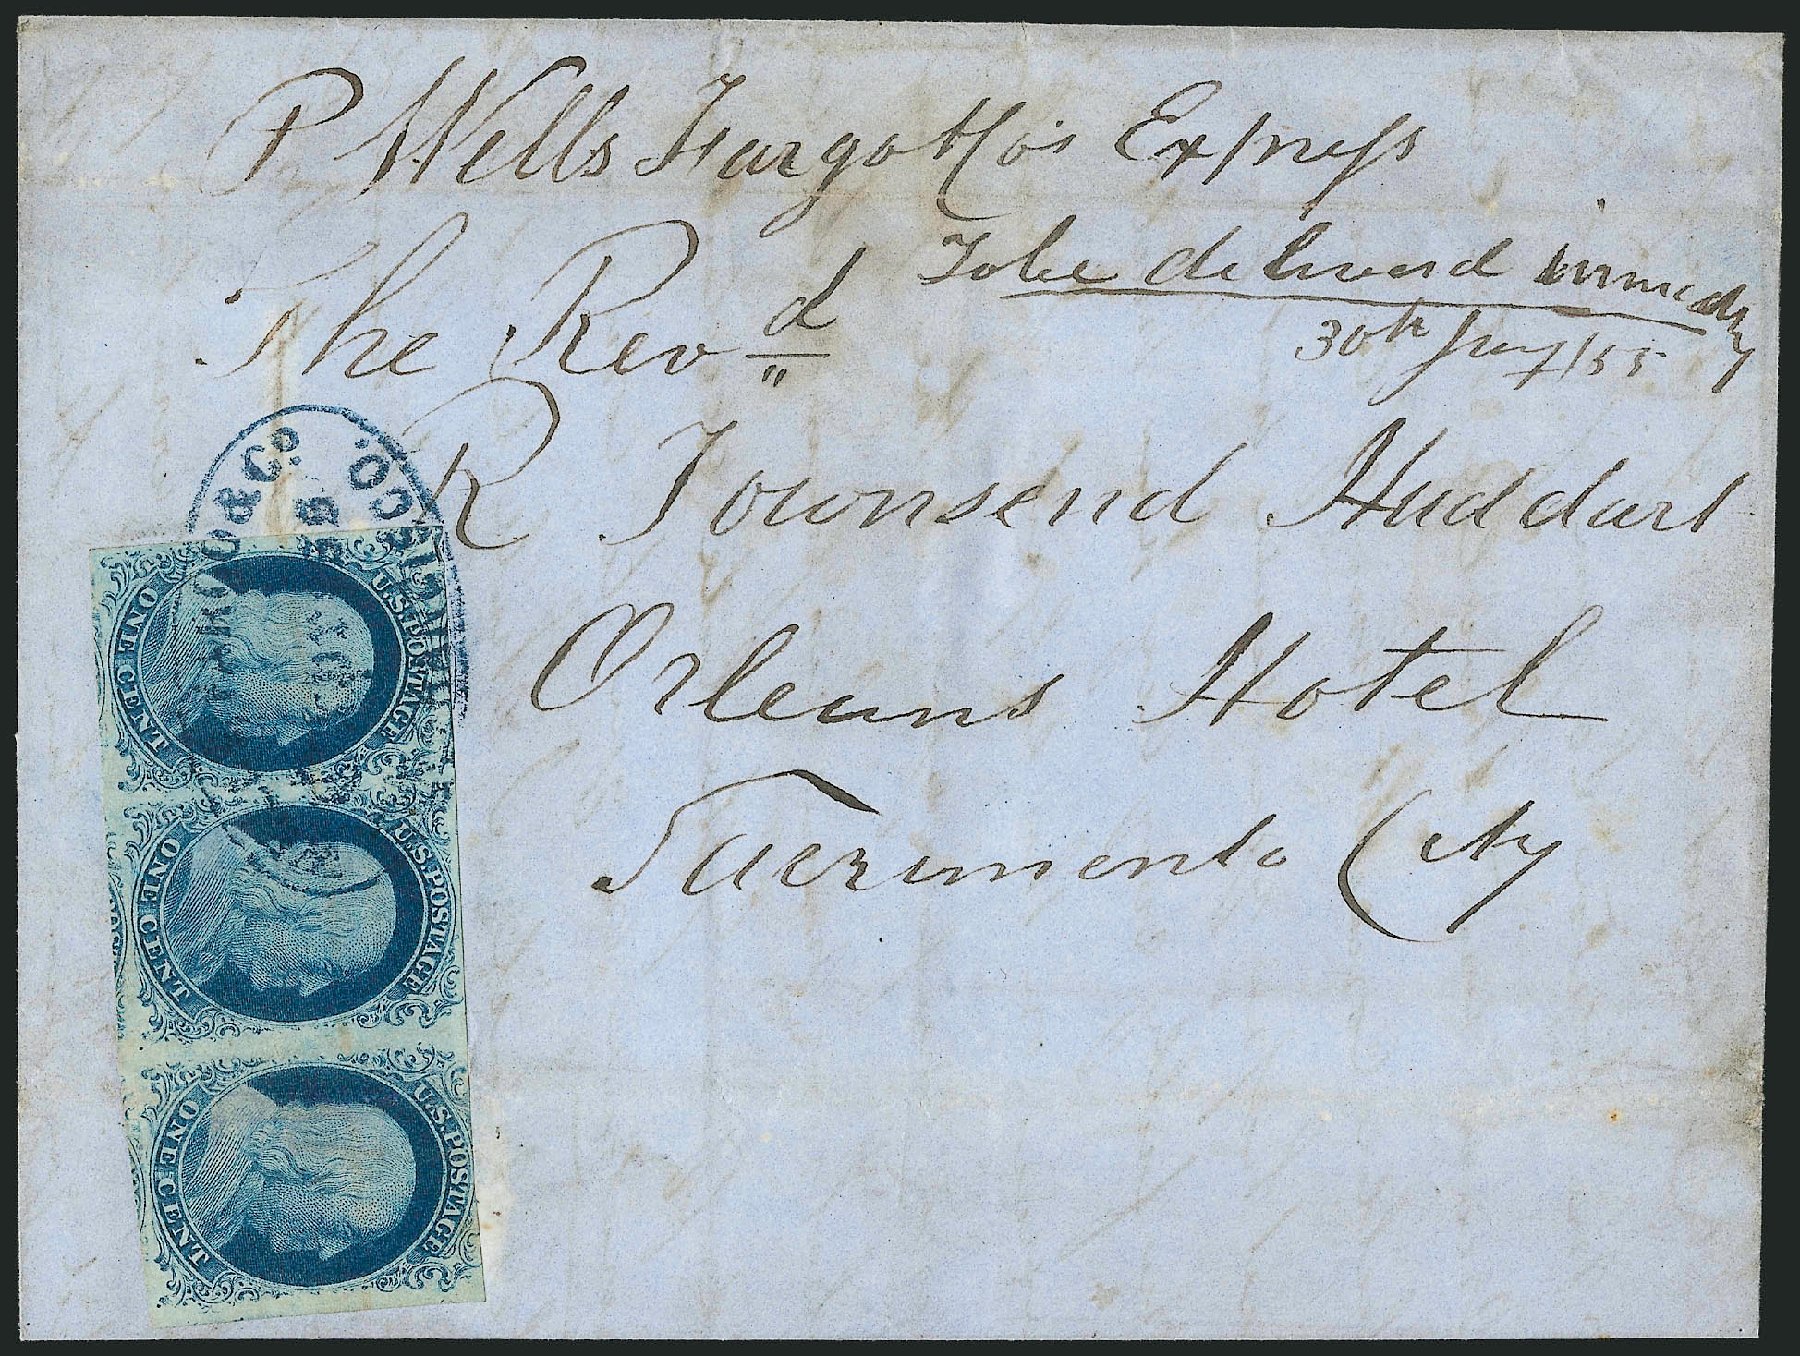 P Wells Fargo & Co's Express
To be delivered immedtly
30th Jany/55
The Revd
R Townsend Huddart
Orleans Hotel
Sacramento City
GO & CO.
CO.
U.S. POSTAGE
ONE CENT
U.S. POSTAGE
ONE CENT
U.S. POSTAGE
ONE CENT